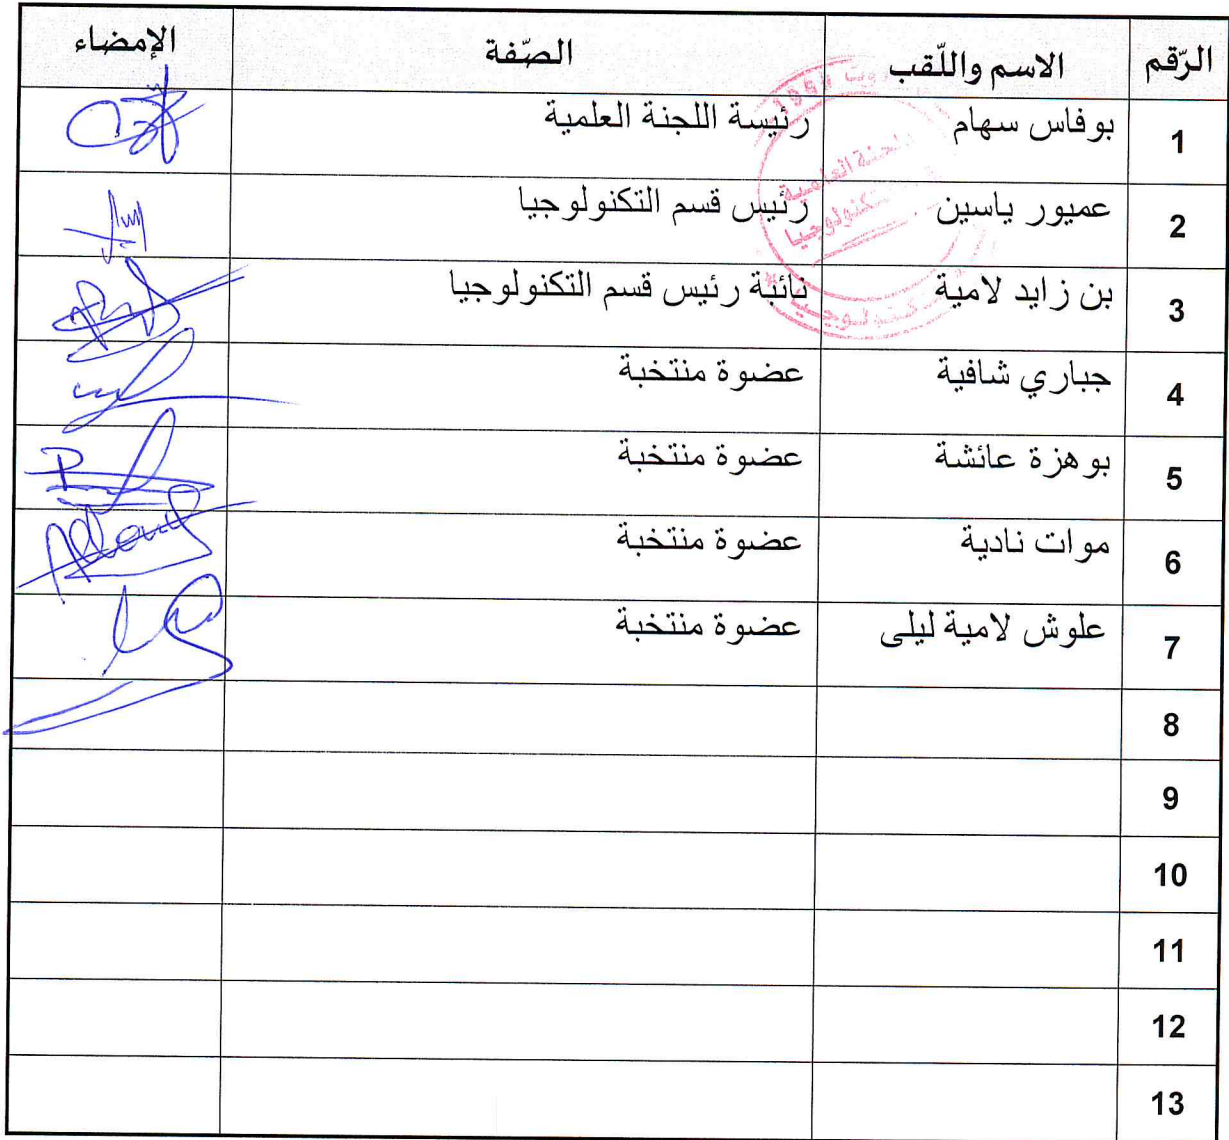 الرّقم الاسم واللّقب الصّفة الإمضاء
1 بوفاس سهام رئيسة اللجنة العلمية
2 عميور ياسين رئيس قسم التكنولوجيا
3 بن زايد لامية نائبة رئيس قسم التكنولوجيا
4 جباري شافية عضوة منتخبة
5 بوهزة عائشة عضوة منتخبة
6 موات نادية عضوة منتخبة
7 علوش لامية ليلى عضوة منتخبة
8
9
10
11
12
13